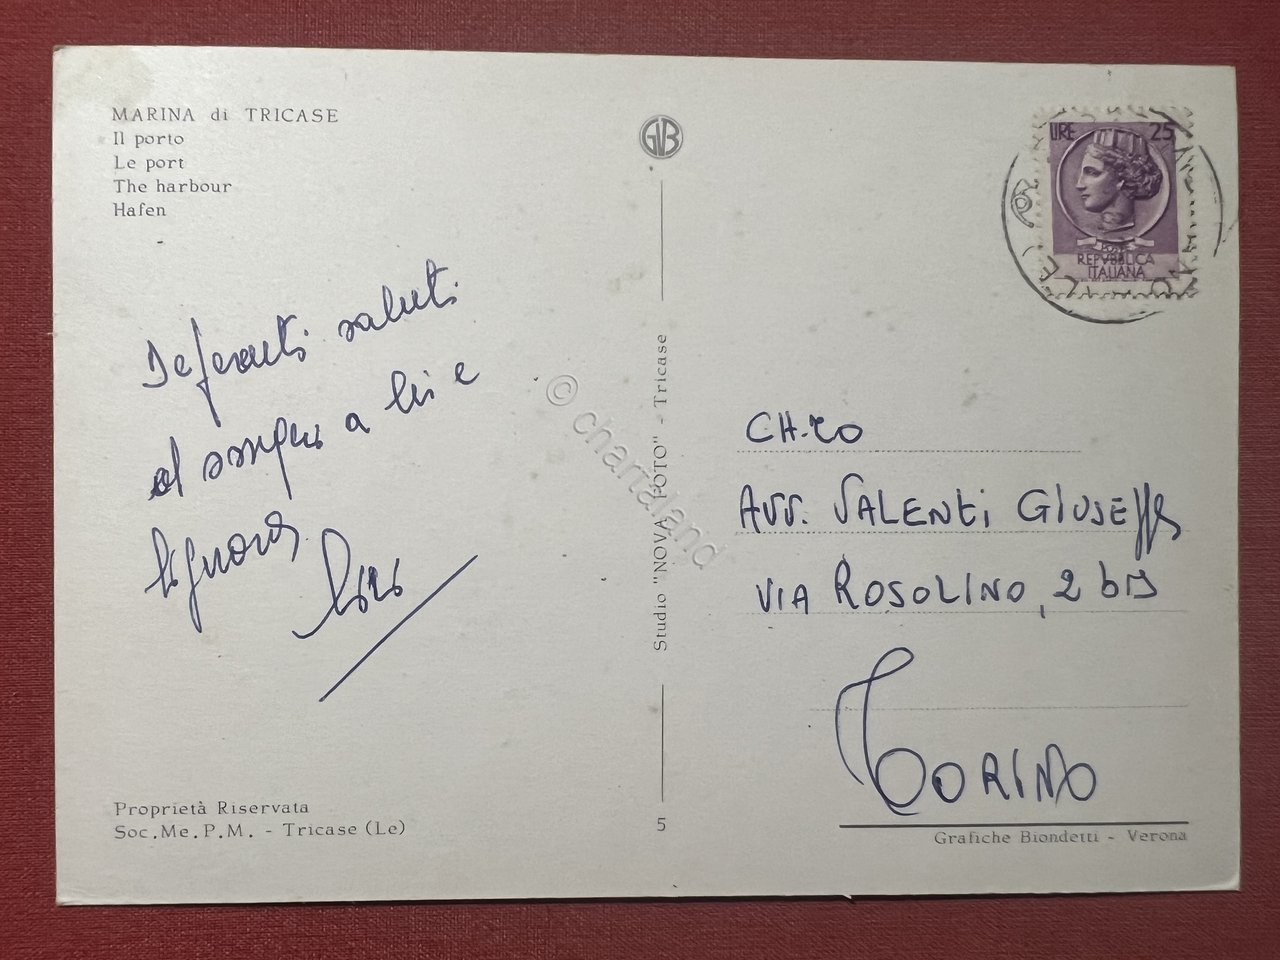 MARINA di TRICASE
Il porto
Le port
The harbour
Hafen
GVB
LIRE 25
POSTE
REPVBBLICA
ITALIANA
Deferenti saluti
a lei e
Signora
© chartaland
Studio "NOVA FOTO" - Tricase
CH.ro
AVV. VALENTI GIUSEPPE
VIA ROSOLINO, 2 bis
TORINO
Proprietà Riservata
Soc.Me.P.M. - Tricase (Le)
5
Grafiche Biondetti - Verona